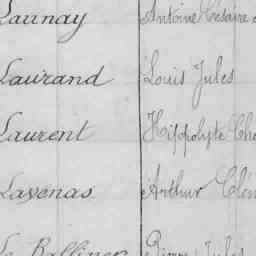 Launay Antoine Césaire
Laurand Louis Jules
Laurent Hippolyte
Lavenas Arthur
Le Balliner Pierre Jules